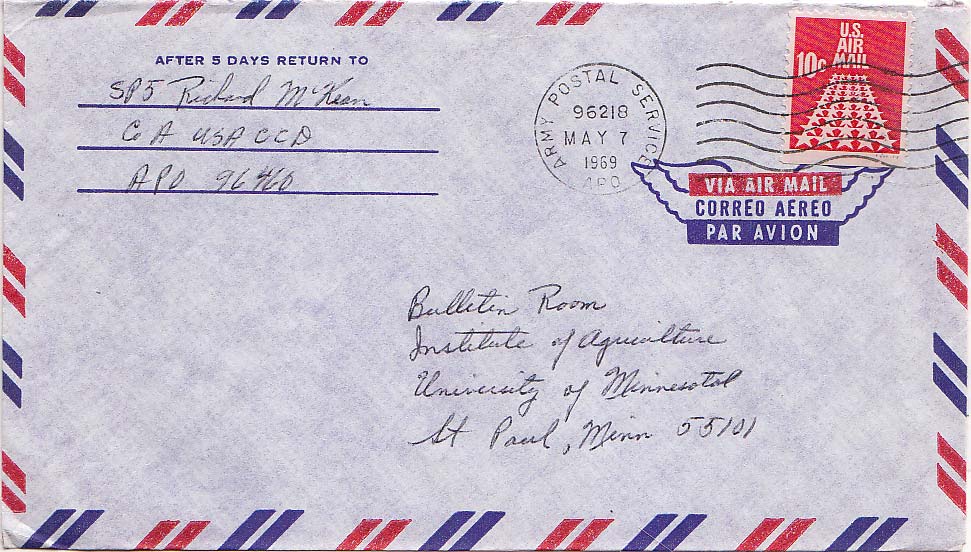 AFTER 5 DAYS RETURN TO
SP5 Richard McKean
Co A USA CCD
APO 96460
U.S.
AIR
MAIL
10c
ARMY POSTAL SERVICE
96218
MAY 7
1969
APO
VIA AIR MAIL
CORREO AEREO
PAR AVION
Bulletin Room
Institute of Agriculture
University of Minnesota
St Paul, Minn 55101